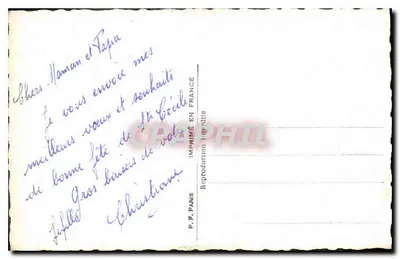 Chers Maman et Papa
Je vous envoie mes
meilleurs vœux et souhaits
de bonne fête de Ste Cécile
Gros baisers de votre
fifille
Christiane
P. F. PARIS
IMPRIMÉ EN FRANCE
Reproduction interdite
CPAPHIL